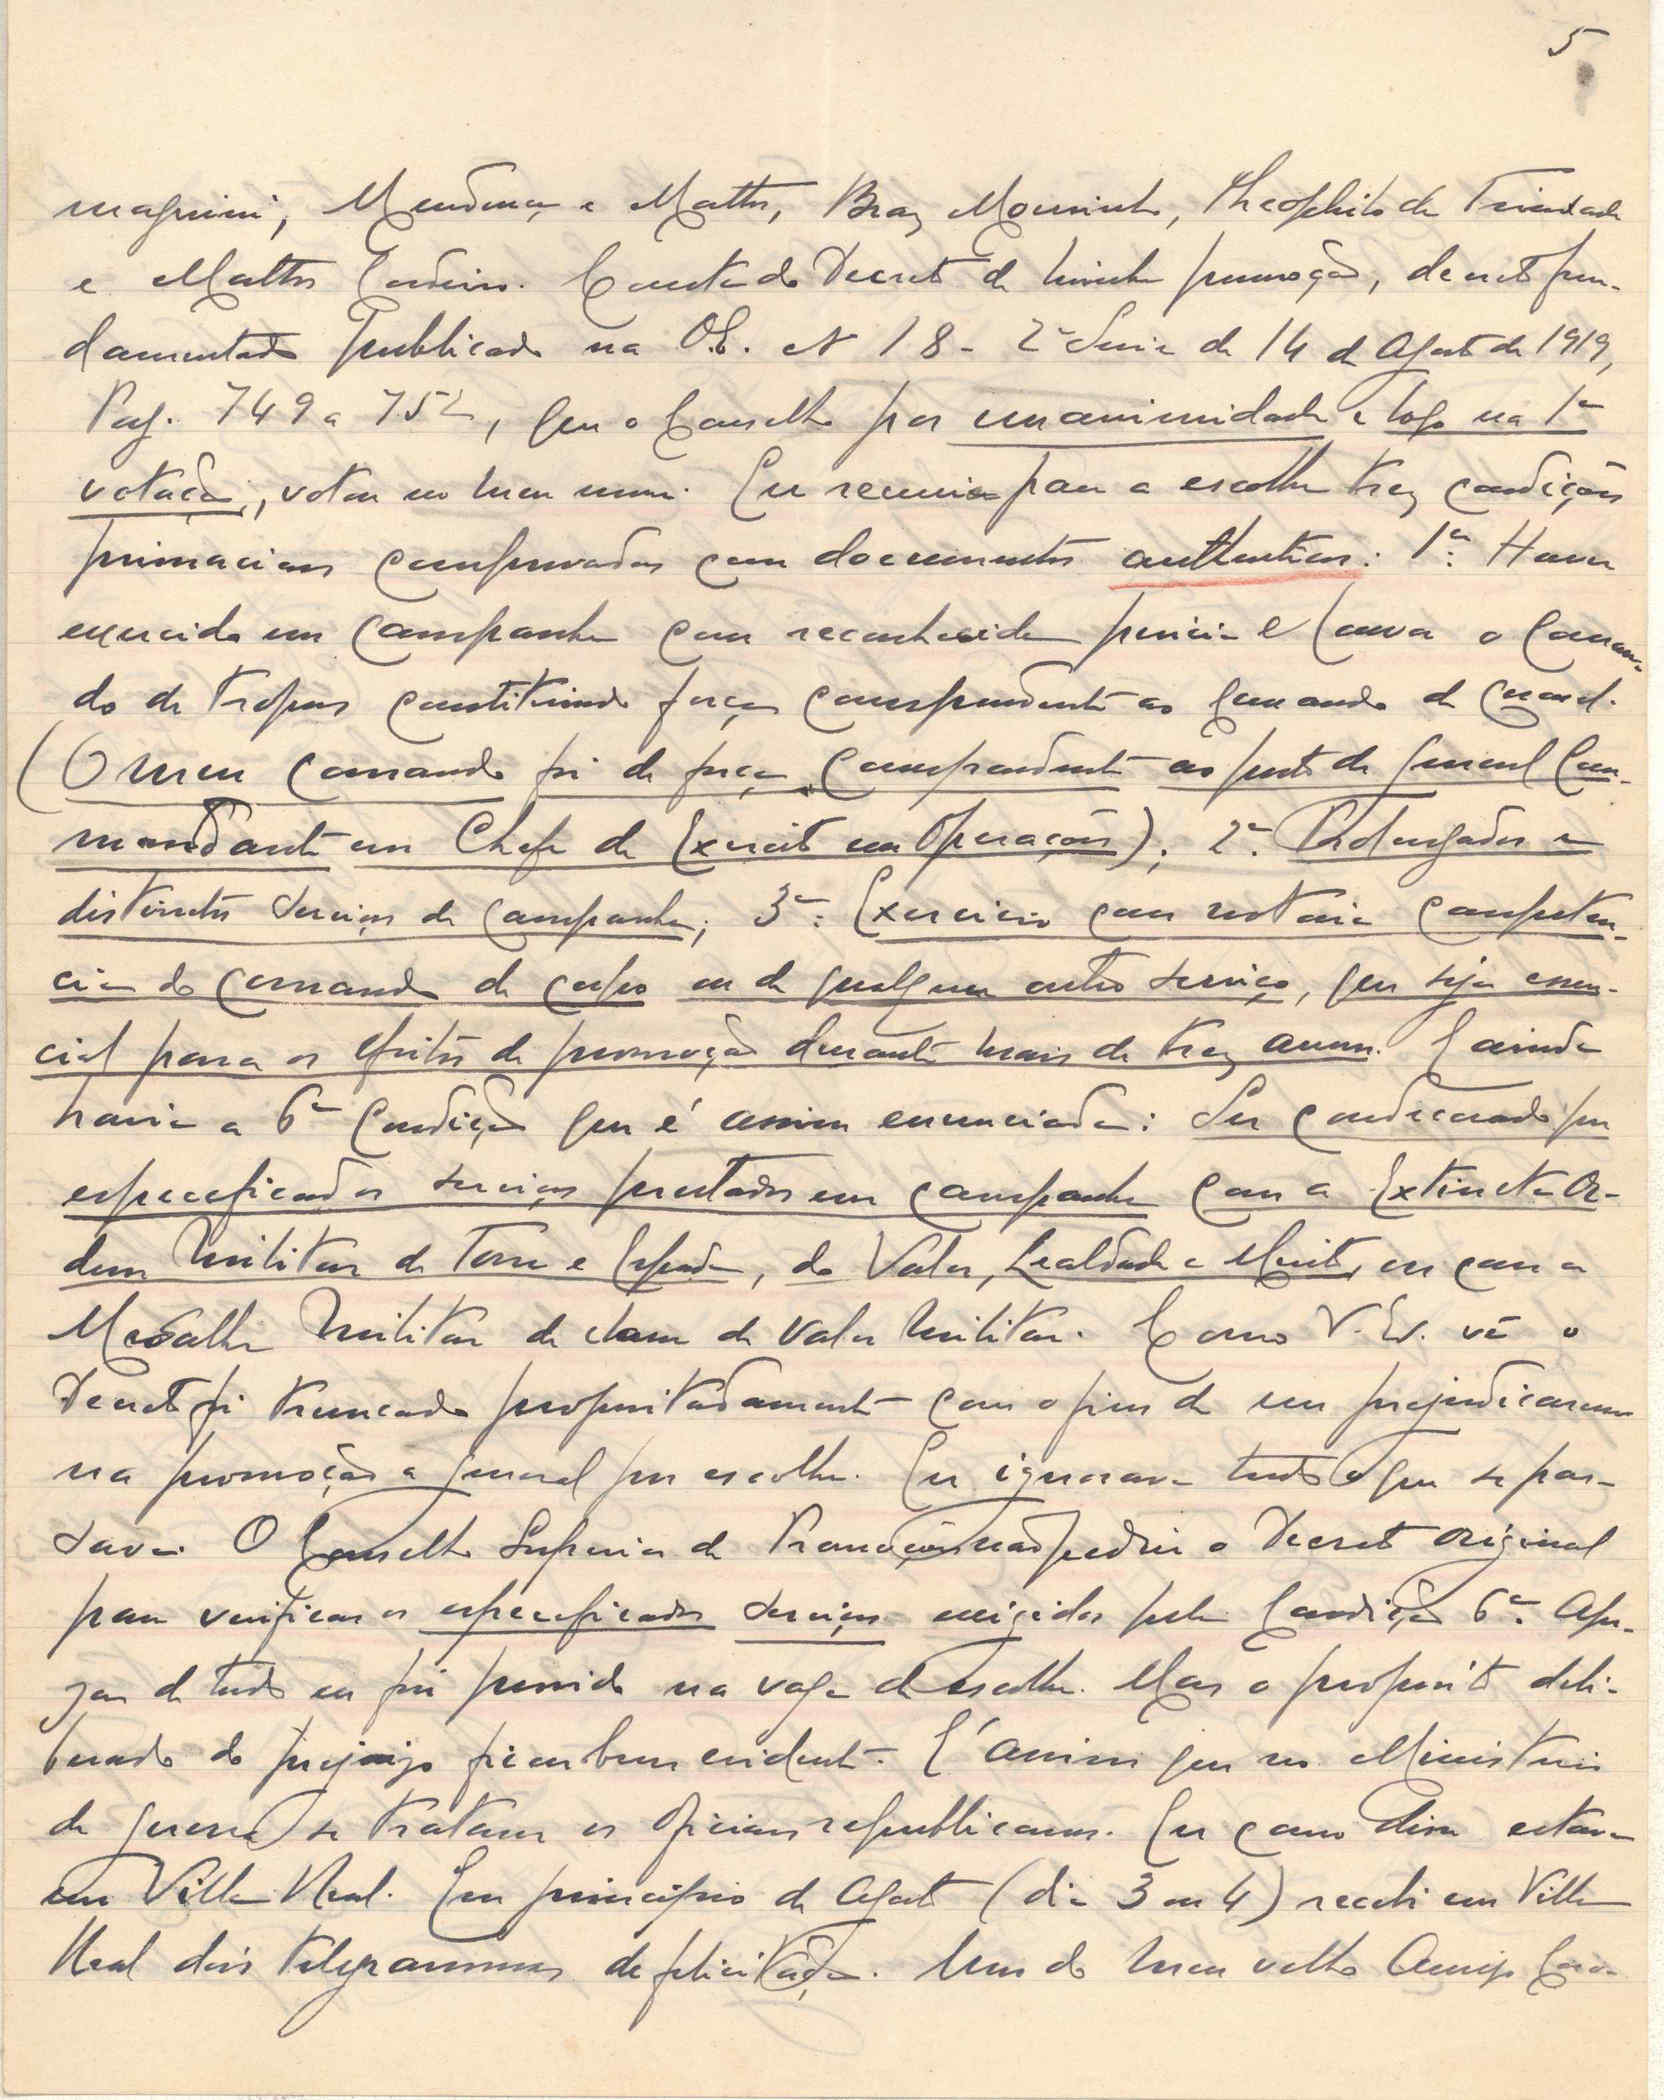 5
magnini, Mendonça e Mattos, Braz Mousinho, Theophilo da Trindade
e Mattos Cordeiro. Consta do Decreto de minha promoção, decreto fun-
damentado publicado na O.E. Nº 18 - 2ª Serie de 14 de Agosto de 1919,
Pag. 749 a 752, que o Conselho por unanimidade e logo na 1ª
votação, votou no meu nome. Eu reunia para a escolha trez condições
primaciaes comprovadas com documentos authenticos: 1ª: Haver
exercido em campanha com reconhecida pericia e louvor o Coman-
do de tropas constituindo força correspondente ao Comando de coronel.
(O meu comando foi de força correspondente ao posto de General Com-
mandante em Chefe de Exercito em Operações); 2ª: Prolongados e
distinctos serviços de campanha; 3ª: Exercicio com notoria competen-
cia do comando de corpo ou de qualquer outro serviço, que seja essen-
cial para os efeitos de promoção durante mais de trez annos. E ainda
havia a 6ª Condição que é assim enunciada: Ser condecorado por
especeficados serviços prestados em campanha com a Extincta Or-
dem Militar da Torre e Espada, do Valor, Lealdade e Merito, ou com a
Medalha Militar da classe de Valor Militar. Como V. Ex. vê o
Decreto foi truncado propositadamente com o fim de me prejudicarem
na promoção a general por escolha. Eu ignorava tudo o que se pas-
sava. O Conselho Superior de Promoções não pediu o Decreto original
para verificar os especeficados serviços exigidos pela Condição 6ª. Ape-
zar de tudo eu fui provido na vaga de escolha. Mas o proposito deli-
berado do prejuizo ficou bem evidente. E' assim que no Ministerio
da guerra se tratam os oficiaes republicanos. Eu como disse estava
em Villa Real. Em principio de Agosto (dia 3 ou 4) recebi em Villa
Real dois telegrammas de felicitação. Um do meu velho Amigo